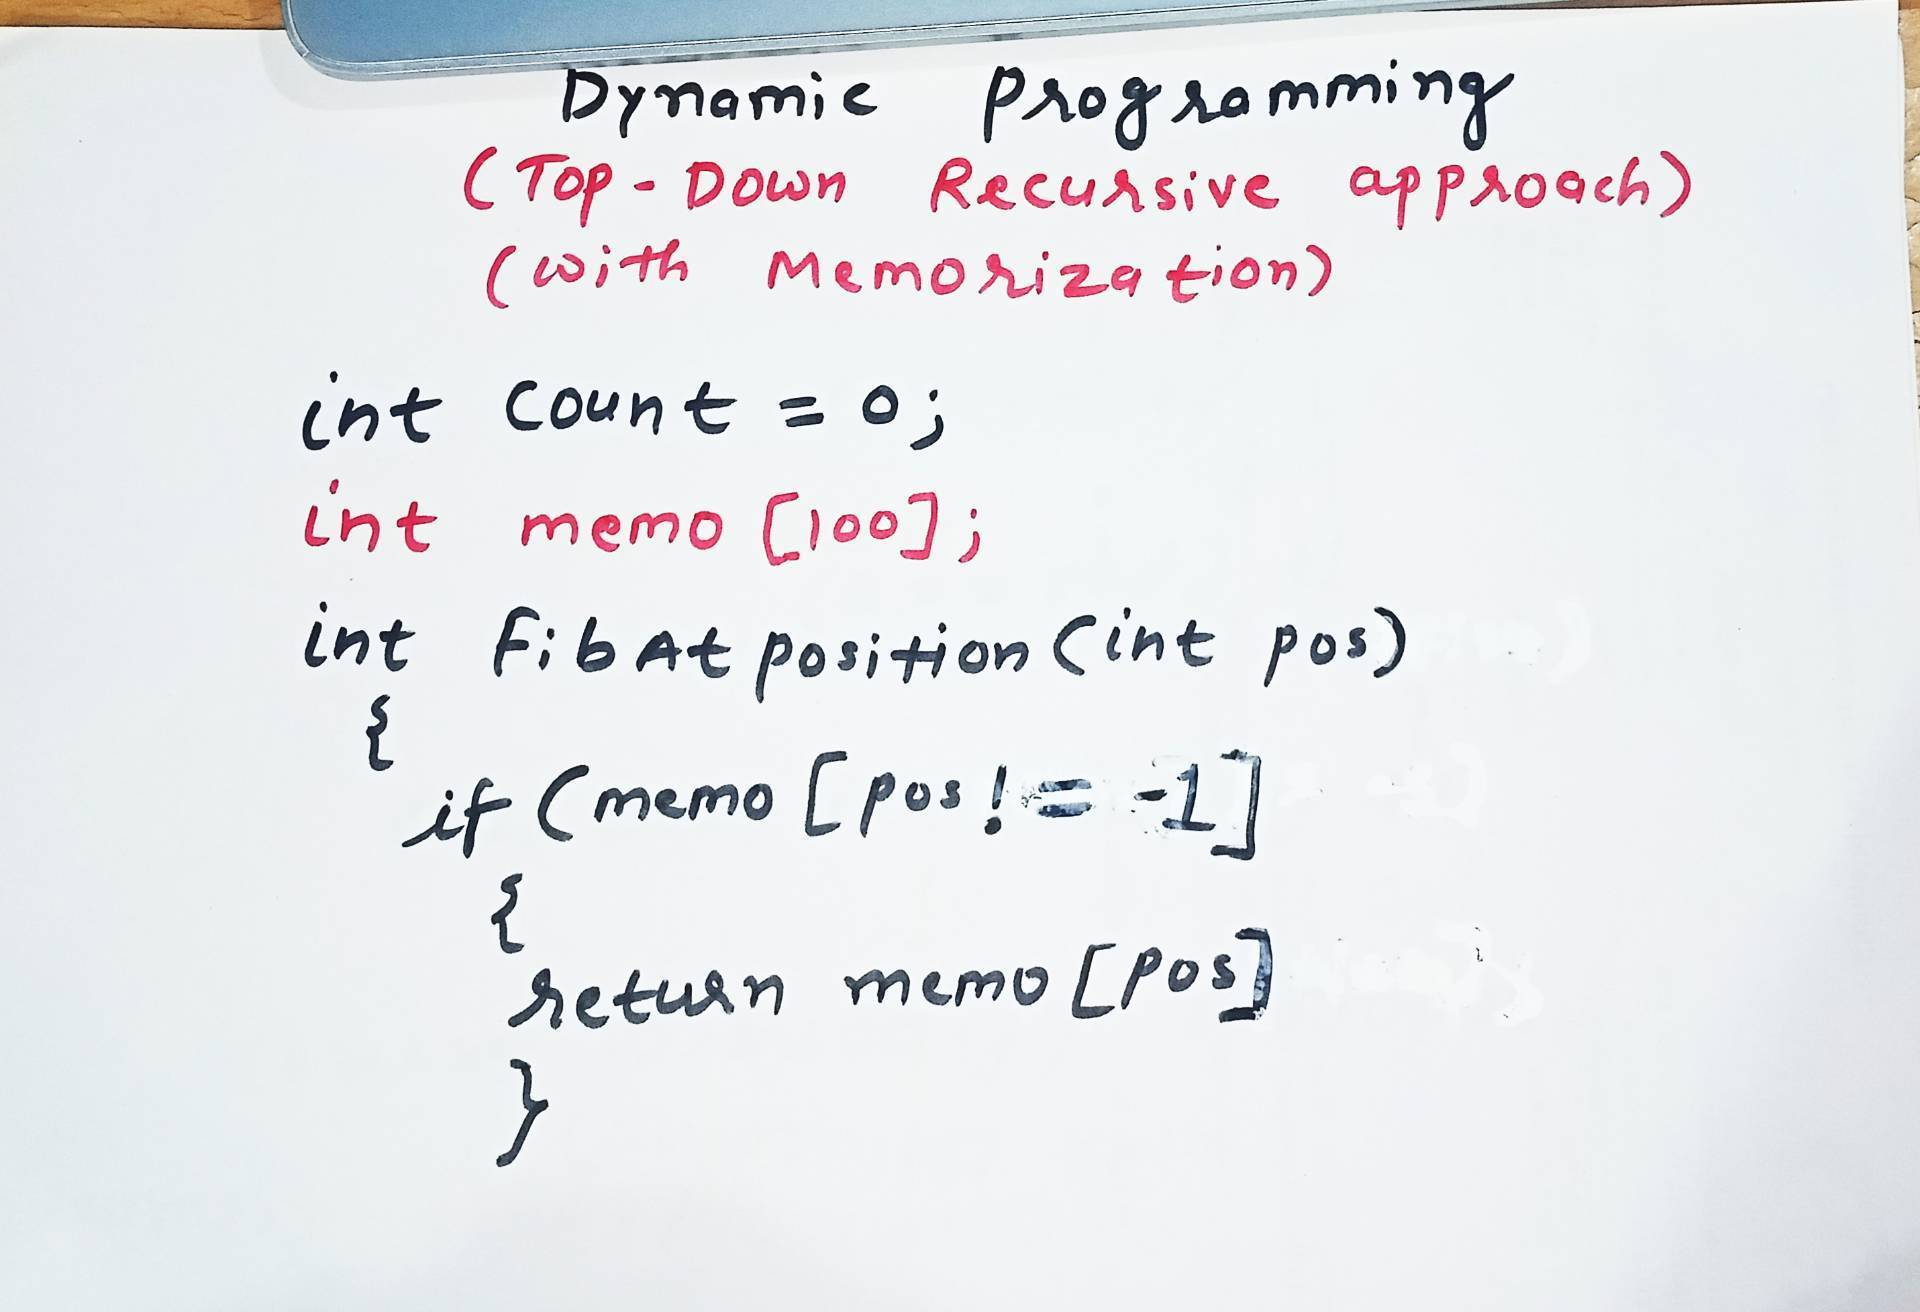 Dynamic Programming
(Top-Down Recursive approach)
(with Memorization)
int count = 0;
int memo [100];
int FibAtposition (int pos)
{
if (memo [pos != -1]
{
return memo [pos]
}